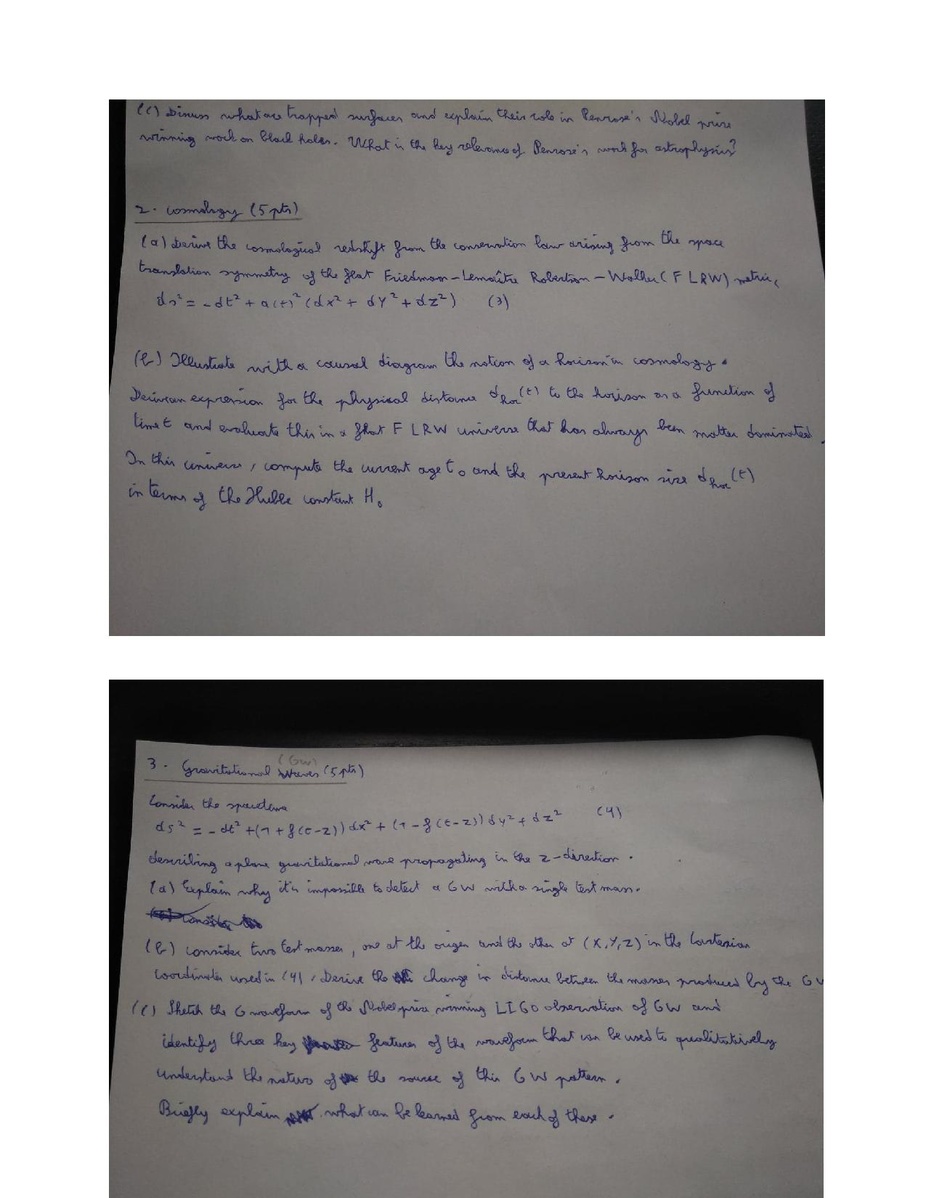 (c) Discuss what are trapped surfaces and explain their role in Penrose's Nobel prize
winning work on black holes. What is the key relevance of Penrose's work for astrophysics?
2. cosmology (5 pts)
(a) Derive the cosmological redshift from the conservation law arising from the space
translation symmetry of the flat Friedman-Lemaître Robertson-Walker (FLRW) metric,
ds² = -dt² + a(t)² (dx² + dy² + dz²) (3)
(b) Illustrate with a causal diagram the notion of a horison in cosmology.
Derive an expression for the physical distance d_hor(t) to the horison as a function of
time t and evaluate this in a flat FLRW universe that has always been matter dominated.
In this universe, compute the current age t₀ and the present horison size d_hor(t)
in terms of the Hubble constant H₀
3. Gravitational Waves (GW) (5 pts)
Consider the spacetime
ds² = -dt² + (1 + f(t-z)) dx² + (1 - f(t-z)) dy² + dz² (4)
describing a plane gravitational wave propagating in the z-direction.
(a) Explain why it is impossible to detect a GW with a single test mass.
(b) consider two test masses, one at the origin and the other at (X,Y,Z) in the Cartesian
coordinates used in (4). Derive the change in distance between the masses produced by the GW
(c) Sketch the G waveform of the Nobel prize winning LIGO observation of GW and
identify three key features of the waveform that can be used to qualitatively
understand the nature of the source of this GW pattern.
Briefly explain what can be learned from each of these.